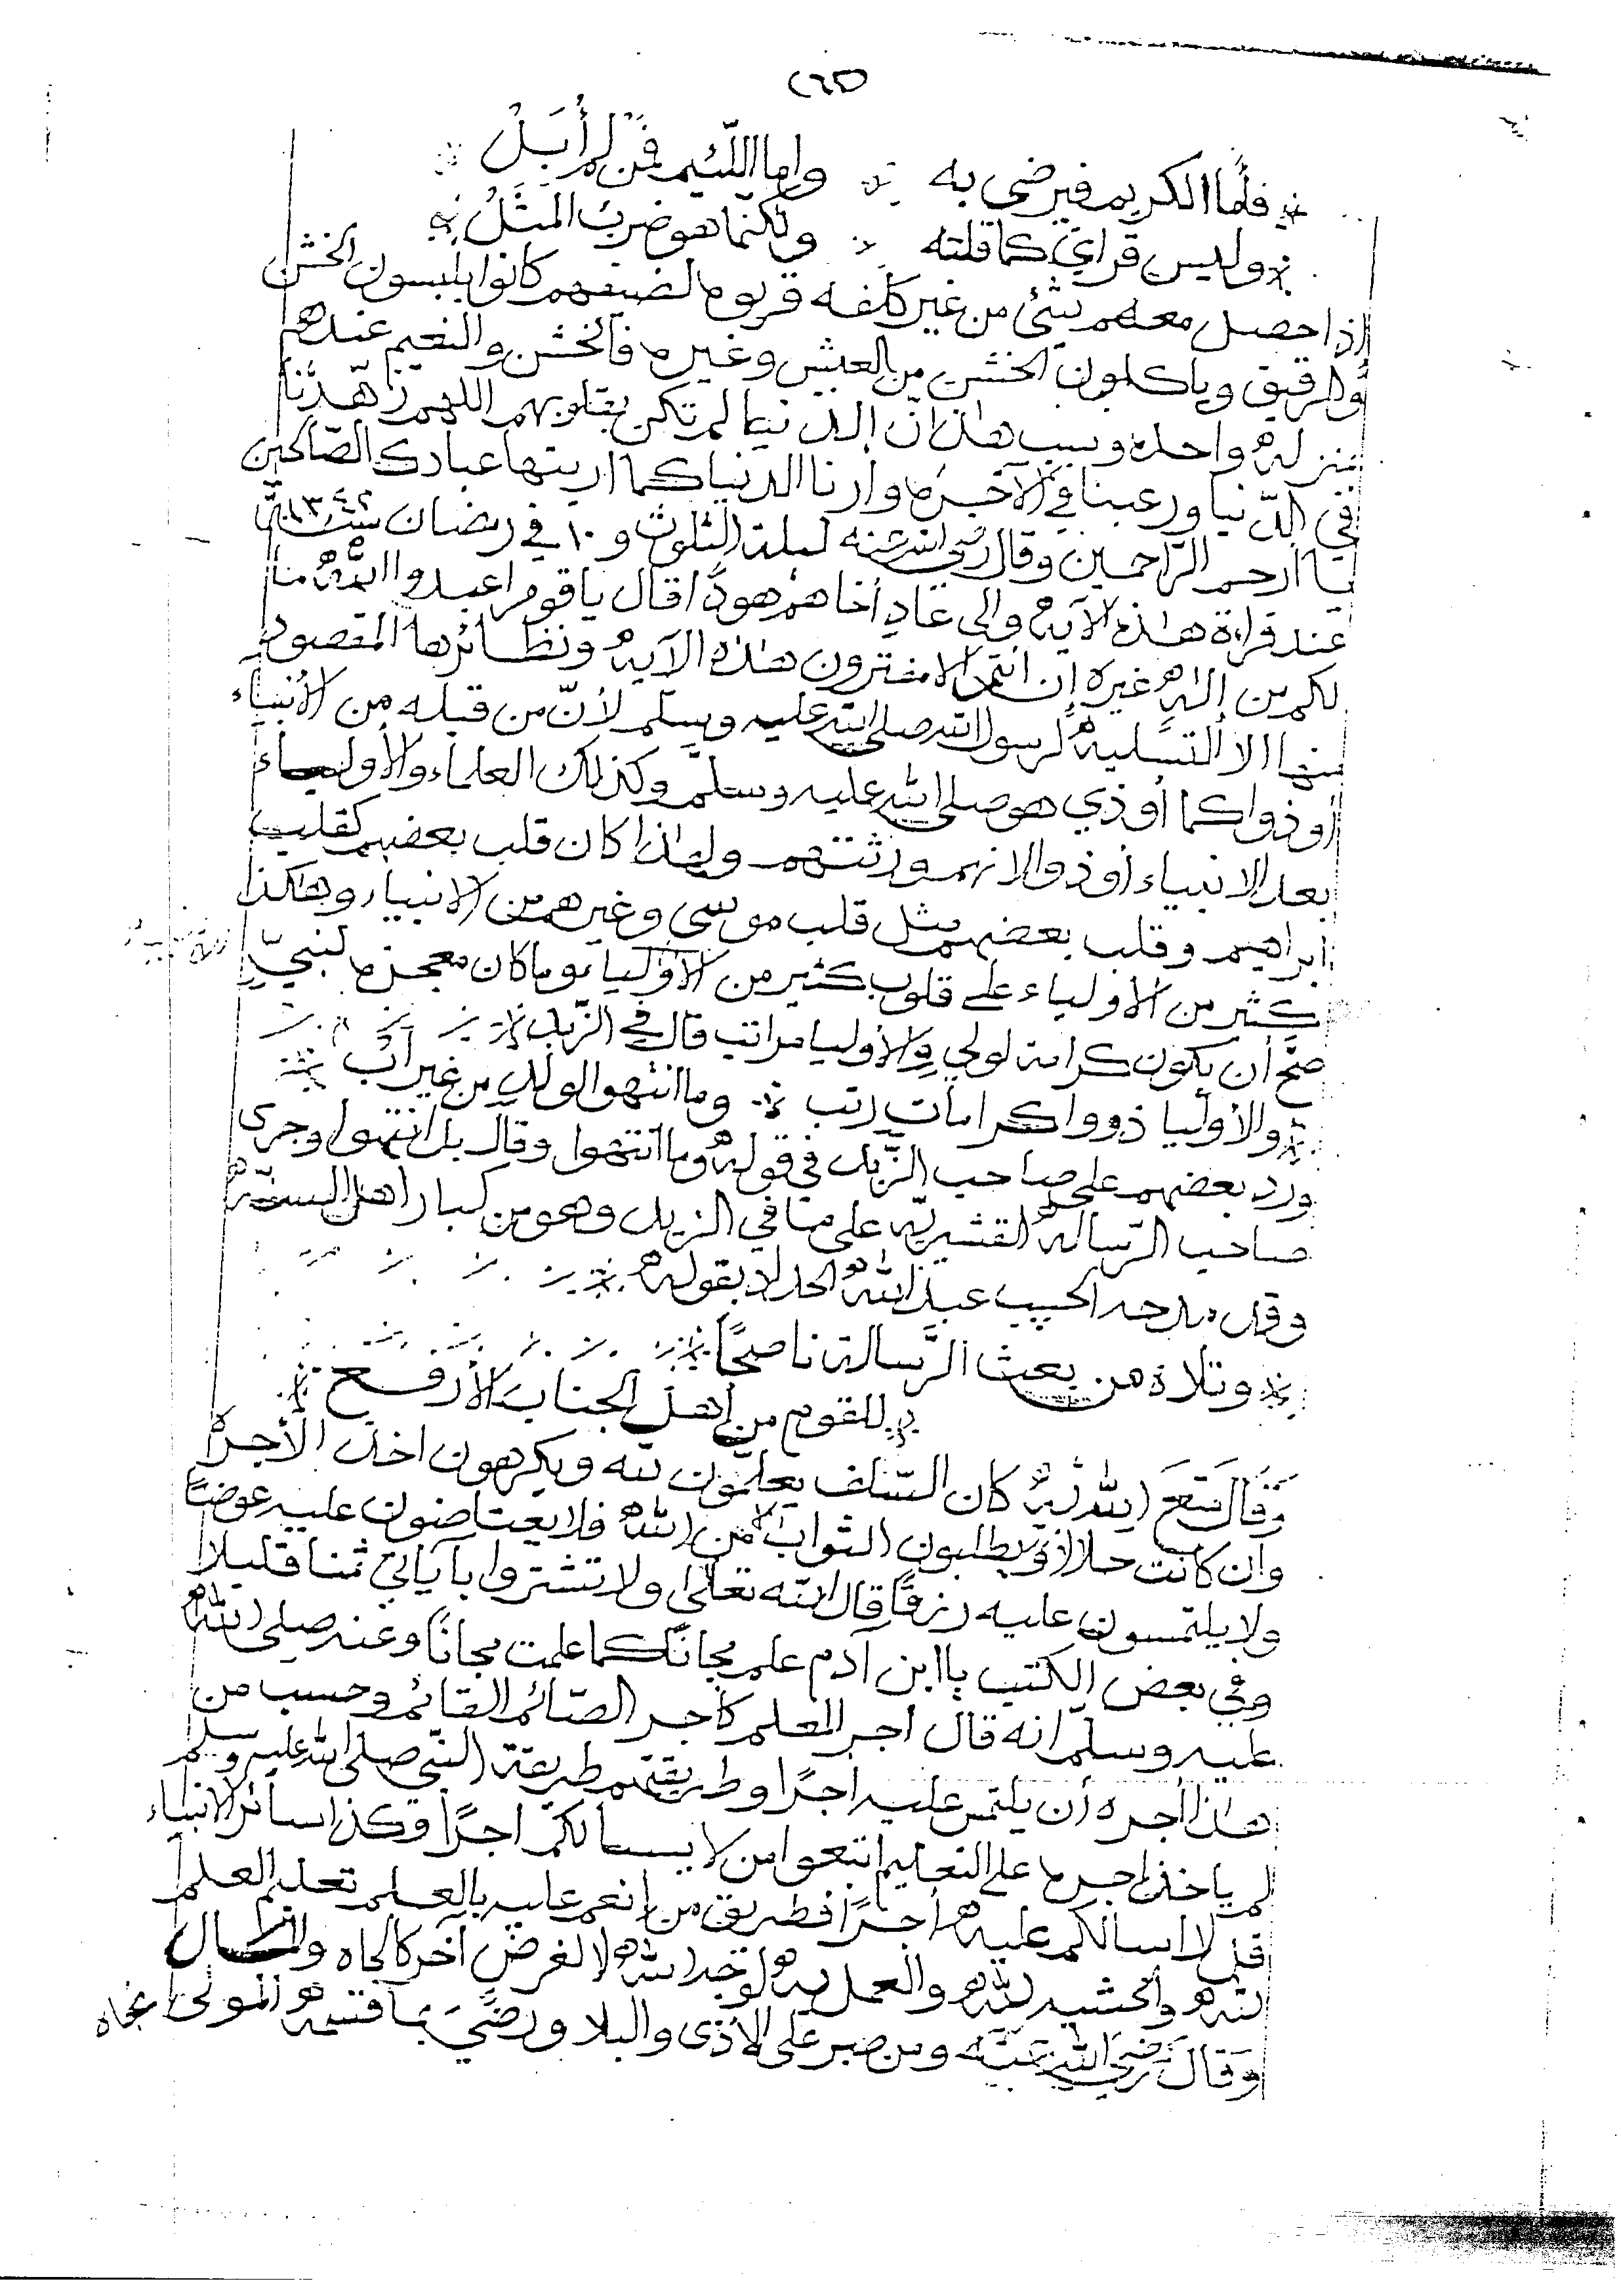 فأما الكريم فيرضى به وإما اللئيم فمن لم أُبَلْ
وليس قراي كما قلته ولكنما هو ضرب المَثَلْ
إذا حصل معهم شيئ من غير كلفه قربوه لضيفهم كانوا يلبسون الخشن
والرقيق وياكلون الخشن من العيش وغيره فالخشن والنعيم عندهم
بمنزلة واحده وسبب هذا انّ الدّنيا لم تكن بقلوبهم اللهم زهّدنا
في الدّنيا ورغبنا في الآخرة وأرنا الدنيا كما اريتها عبادك الصّالحين
يا ارحم الرّاحمين وقال رضي الله عنه ليلة الثلوث و ١٠ في رمضان سنة ١٣٤٢
عند قراءة هذه الآية والى عادٍ أخاهم هودًا قال ياقوم اعبدوا اللهَ ما
لكم من إلهٍ غيره إن انتم الا مفترون هذه الآية ونظائرها المقصود
منها الا التسلية لرسول الله صلى الله عليه وسلم لأنّ من قبله من الأنبياء
أوذوا كما أوذي هو صلى الله عليه وسلّم وكذلك العلماء والأولياء
بعد الانبياء أوذوا لانهم ورثتهم ولهذا كان قلب بعضهم كقلب
ابراهيم وقلب بعضهم مثل قلب موسى وغيرهم من الانبياء وهكذا
كثير من الاولياء على قلوب كثير من الأوليا وما كان معجزه لنبيٍّ
صحّ أن يكون كرامة لولي والأوليا مراتب قال في الزّبد
والأوليا ذووا كرامات رتب وما انتهوا لولد من غير أب
ورد بعضهم على صاحب الزّبد في قوله وما انتهوا وقال بل انتهوا وجرى
صاحب الرّسالة القشيريّه على ما في الزبد وهو من كبار اهل السنّة
وقد مدحه الحبيب عبد الله الحداد بقوله
وتلاه من بعث الرّسالة ناصحًا
للقوم من اهل الجناب الأرفع
وَقَالَ مَتّعَ اللهُ بِهِ كان السّلف يعلّمون لله ويكرهون اخذ الأجرة
وان كانت حلالا ويطلبون الثواب من الله فلا يعتاضون عليه عوضًا
ولا يلتمسون عليه رزقًا قال الله تعالى ولا تشتروا بآياتي ثمنا قليلا
وفي بعض الكتب يا ابن آدم علم مجانًا كما علمت مجانًا وعنه صلى الله
عليه وسلّم انه قال أجر المعلم كأجر الصّائم القائم وحسب من
هذا أجره أن يلتمس عليه اجرًا وطريقتهم طريقة النّبي صلى الله عليه وسلم
لم ياخذ اجره على التعليم اتبعوا من لا يسألكم اجرًا وكذا سائر الانبياء
قل لا اسالكم عليه أجرًا فطريق من انعم عليه بالعلم تعليم العلم
لله والخشيه لله والعمل به لوجه الله لا لغرضٍ آخر كالجاه والمال
وَقَالَ رَضيَ اللهُ عَنه ومن صبر على الأذى والبلا ورضيَ بما قسمه المولى نجاه